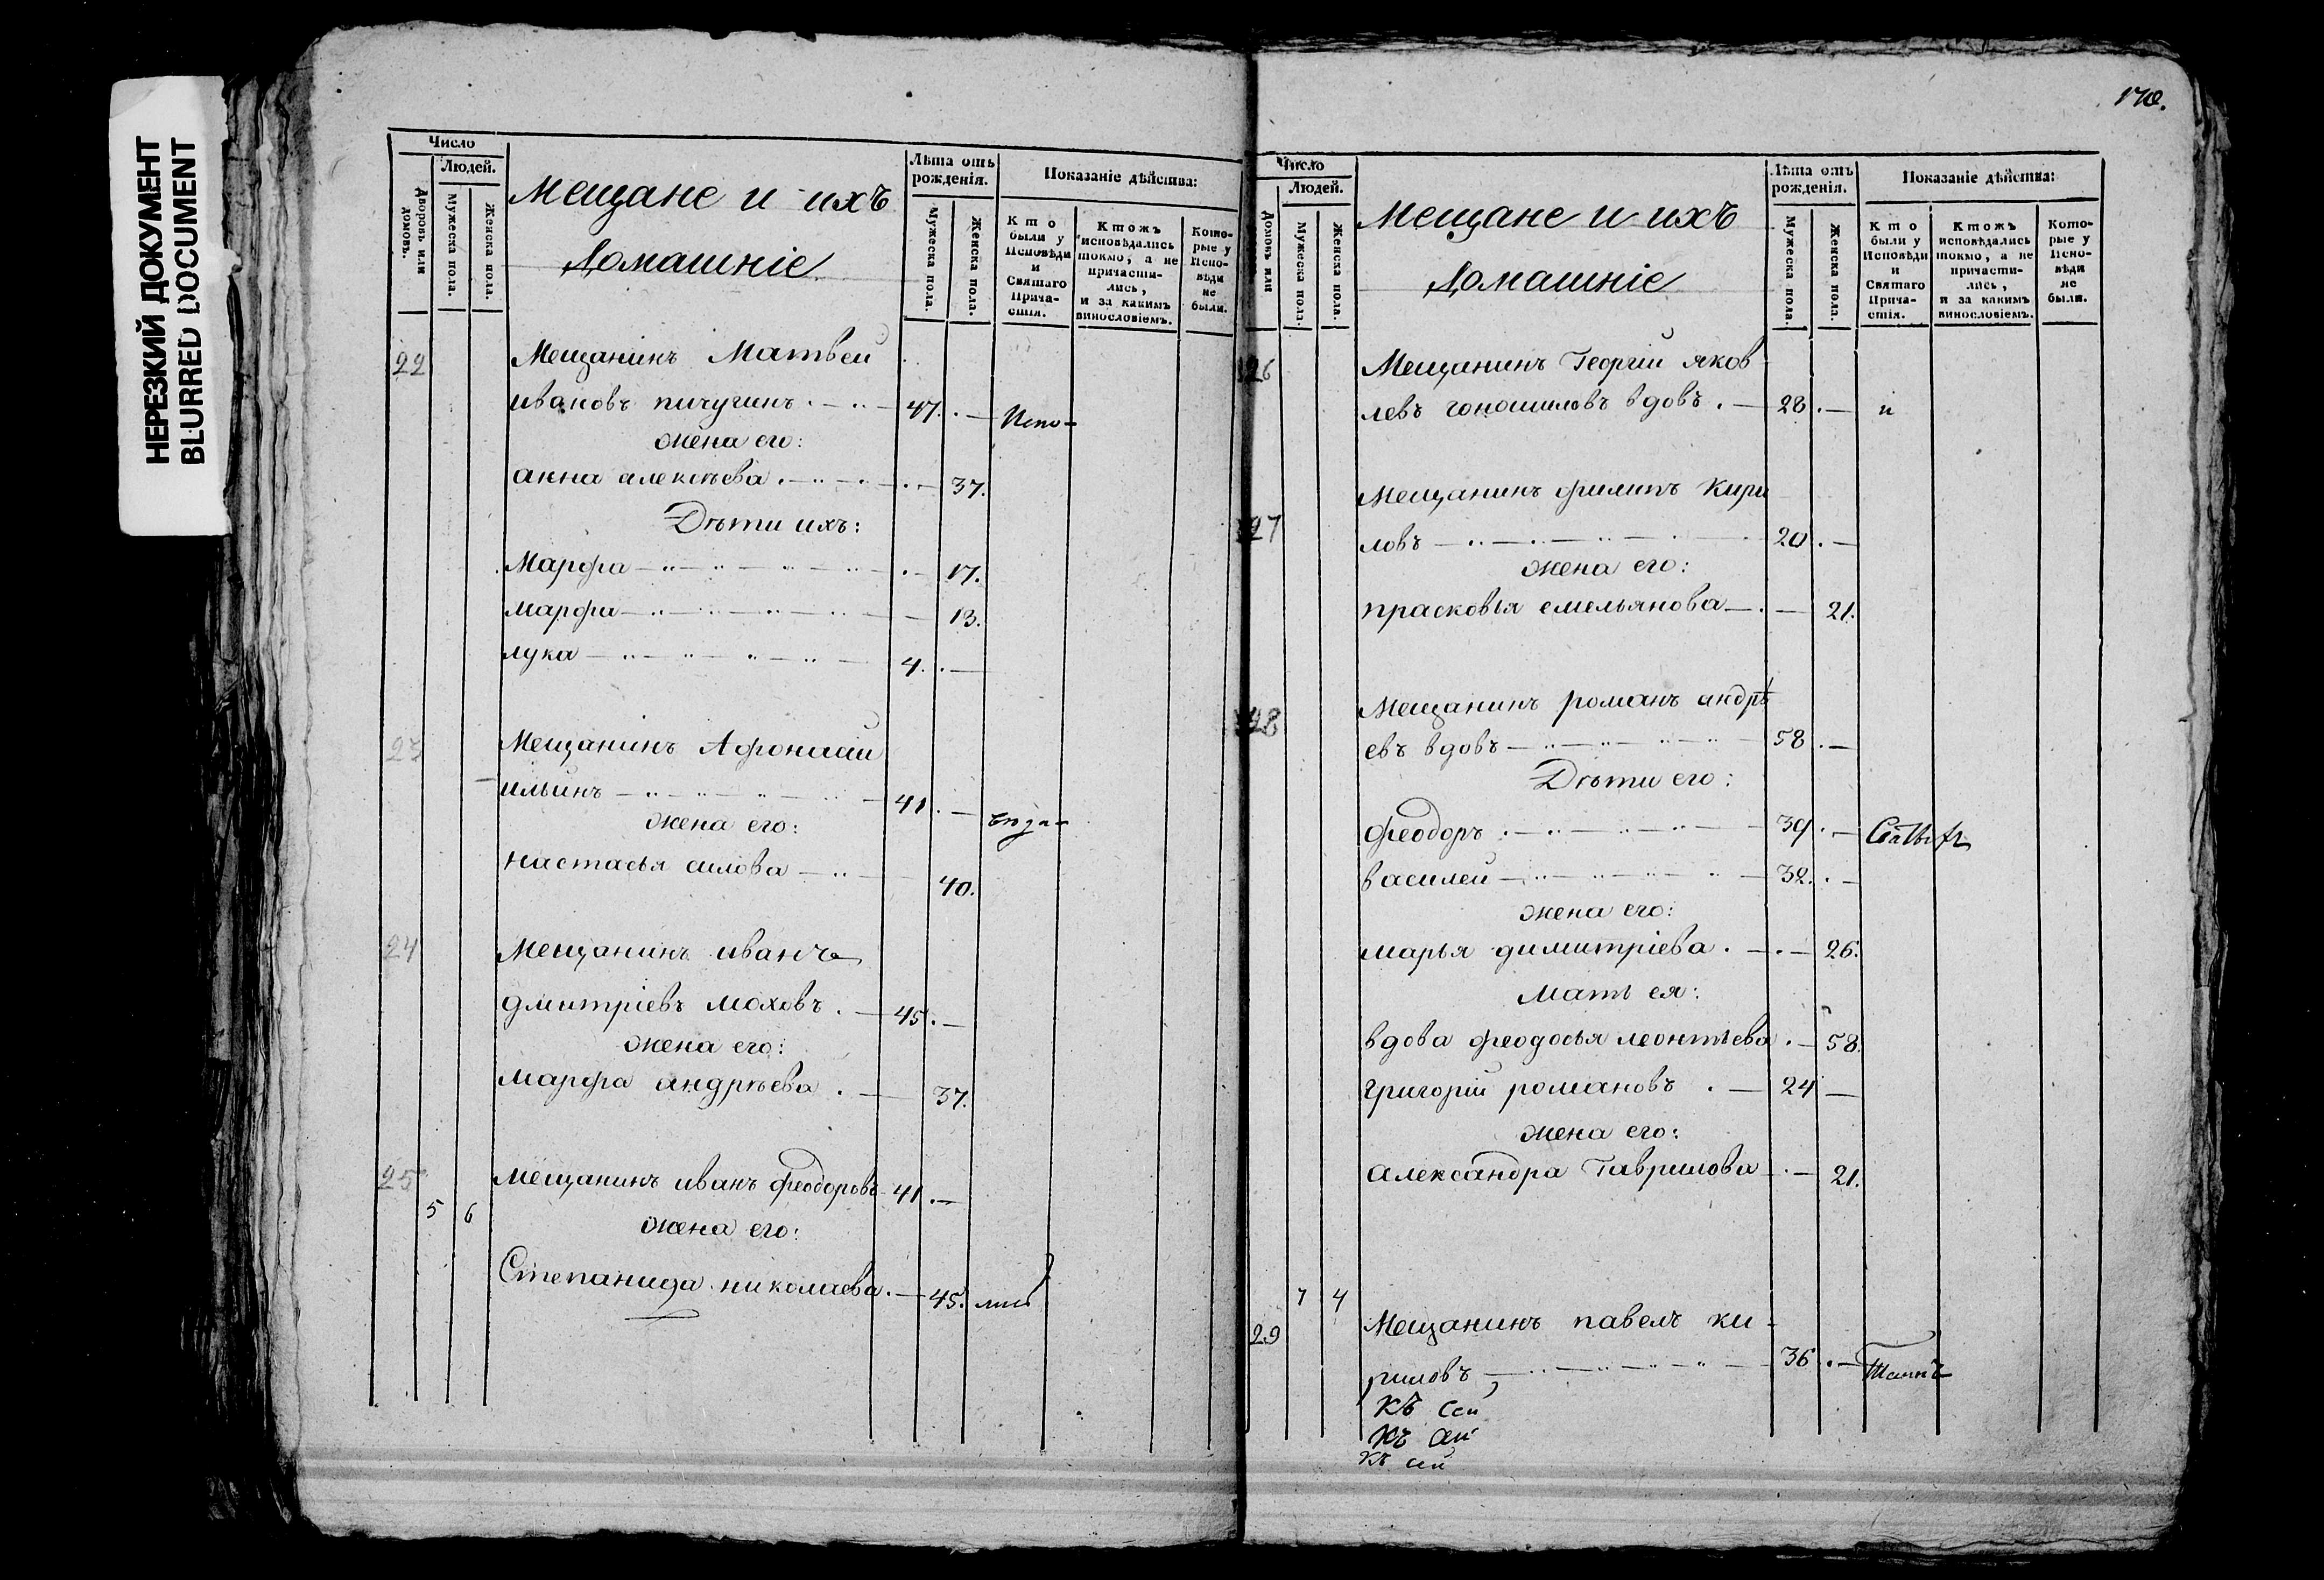 НЕРЕЗКИЙ ДОКУМЕНТ
BLURRED DOCUMENT
Число
Людей.
Дворовъ или домовъ.
Мужеска пола.
Женска пола.
Мещане и ихъ
Домашніе
Лѣта отъ
рожденія.
Мужеска пола.
Женска пола.
Показаніе дѣйства:
Кто
были у
Исповѣди
и
Святаго
Прича-
стія.
Ктожъ
исповѣдались
токмо, а не
причасти-
лись,
и за какимъ
винословіемъ.
Кото-
рые у
Испо-
вѣди
не
были.
22 Мещанинъ Матвей
ивановъ пичугинъ 47. Испо-
жена его:
анна алексѣева 37.
Дѣти ихъ:
Марфа 17.
марфа 13.
лука 4.
23 Мещанинъ Афонасій
ильинъ 41
жена его:
настасья силова 40.
24 Мещанинъ иванъ
дмитріевъ моховъ 45
жена его:
марфа андрѣева 37.
25 мещанинъ иванъ феодоровъ 41
5 6
жена его:
Степанида николаева 45. лись
170.
Число
Людей.
Домовъ или
Мужеска пола.
Женска пола.
Мещане и ихъ
Домашніе
Лѣта отъ
рожденія.
Мужеска пола.
Женска пола.
Показаніе дѣйства:
Кто
были у
Исповѣди
и
Святаго
Прича-
стія.
Ктожъ
исповѣдались
токмо, а не
причасти-
лись,
и за какимъ
винословіемъ.
Кото-
рые у
Испо-
вѣди
не
были.
26 Мещанинъ Георгій яков-
левъ вдовъ 28 и
27 Мещанинъ филипъ Кири
ловъ 20
жена его:
прасковья емельянова 21.
28 Мещанинъ романъ андрѣ
евъ вдовъ 58
Дѣти его:
феодоръ 39
василей 32.
жена его:
марья димитріева 26.
Мать ея:
вдова феодосья леонтьева 58.
григорій романовъ 24
жена его:
александра Гаврилова 21.
7 4
29 Мещанинъ павелъ ки-
риловъ 36
КЪ сей
Къ сей
Къ сей